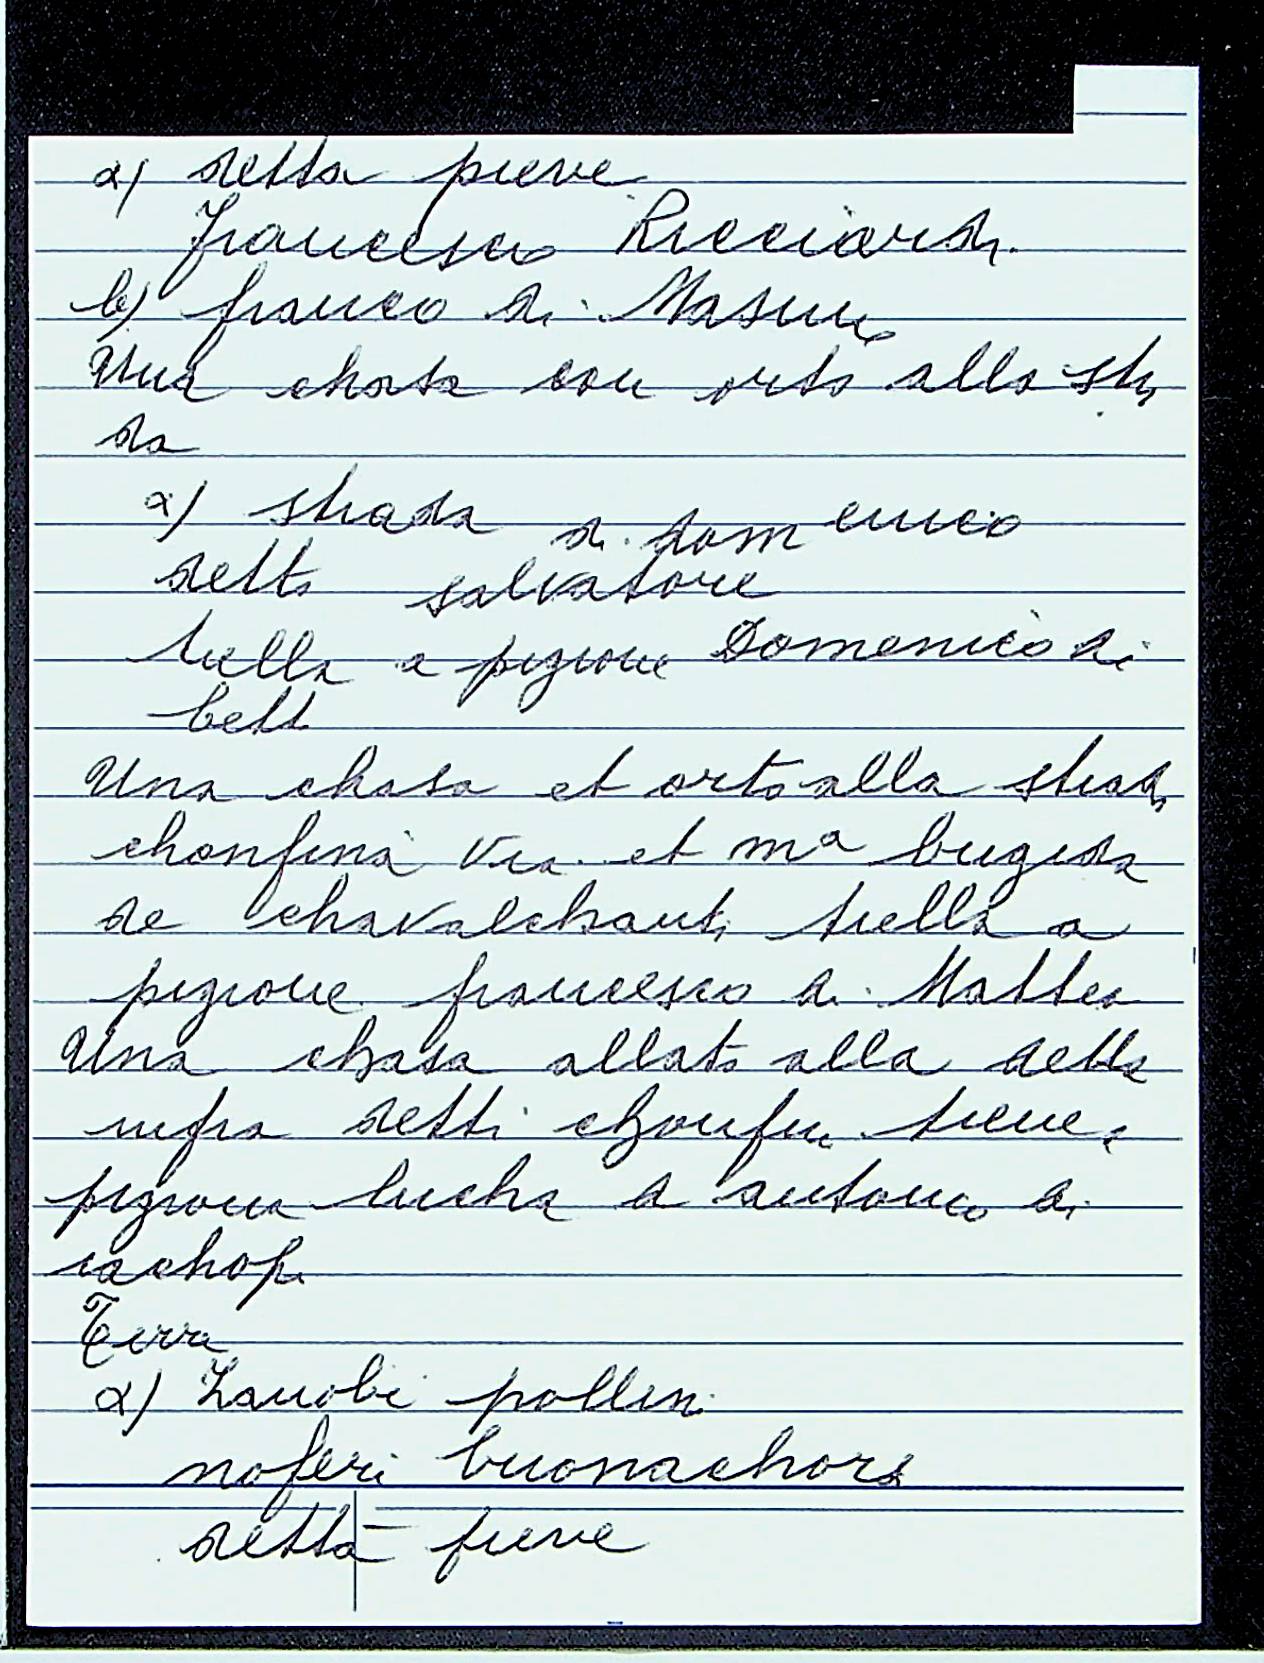 a) detta pieve
Francesco Ricciardi.
b) franco di Masini
Una chasa con orto alla stra
da
a) strada di domenico
detto salvatore
tiella a pigione Domenico di
bett
Una chasa et orto alla strada
chonfina via et mª brigida
de chavalchanti tiella a
pigione francesco di Matteo
Una chasa allato alla detta
infra detti chonfini tiene a
pigione lucha d antonio di
iachopi
Terra
a) Zanobi pollini
noferi buonachorsi
detta pieve